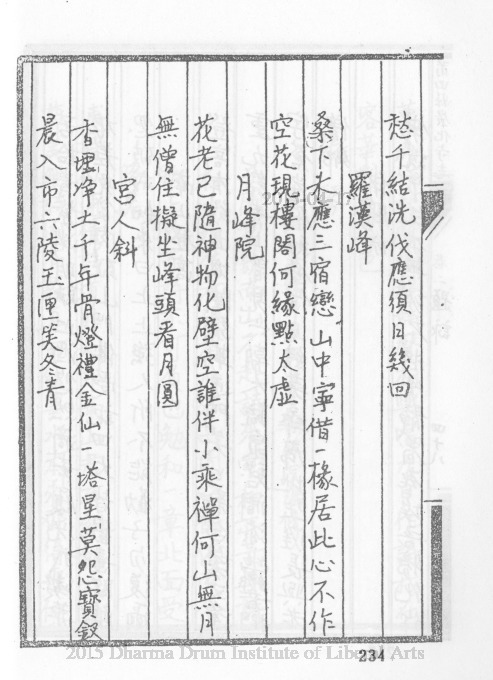 愁千結洗伐應須日幾回
羅漢峰
桑下未應三宿戀山中寧借一椽居此心不作
空花現樓閣何緣點太虛
月峰院
花老已隨神物化壁空誰伴小乘禪何山無月
無僧住擬坐峰頭看月圓
宮人斜
香埋净土千年骨燈禮金仙一塔星莫怨寶釵
晨入市六陵玉匣笑冬青
234
2015 Dharma Drum Institute of Liberal Arts